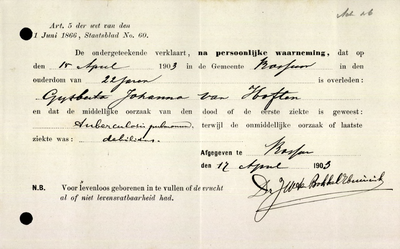 Art. 5 der wet van den
1 Juni 1866, Staatsblad No. 60.
De ondergeteekende verklaart, na persoonlijke waarneming, dat op
den 15 April 1903 in de Gemeente Rossum in den
ouderdom van 22 jaren is overleden:
Johanna van
en dat de middellijke oorzaak van den dood of de eerste ziekte is geweest:
tuberculosis pulmonum, terwijl de onmiddellijke oorzaak of laatste
ziekte was:
Afgegeven te Rossum
den 17 April 1903
Dr.
N.B. Voor levenloos geborenen in te vullen of de vrucht
al of niet levensvatbaarheid had.